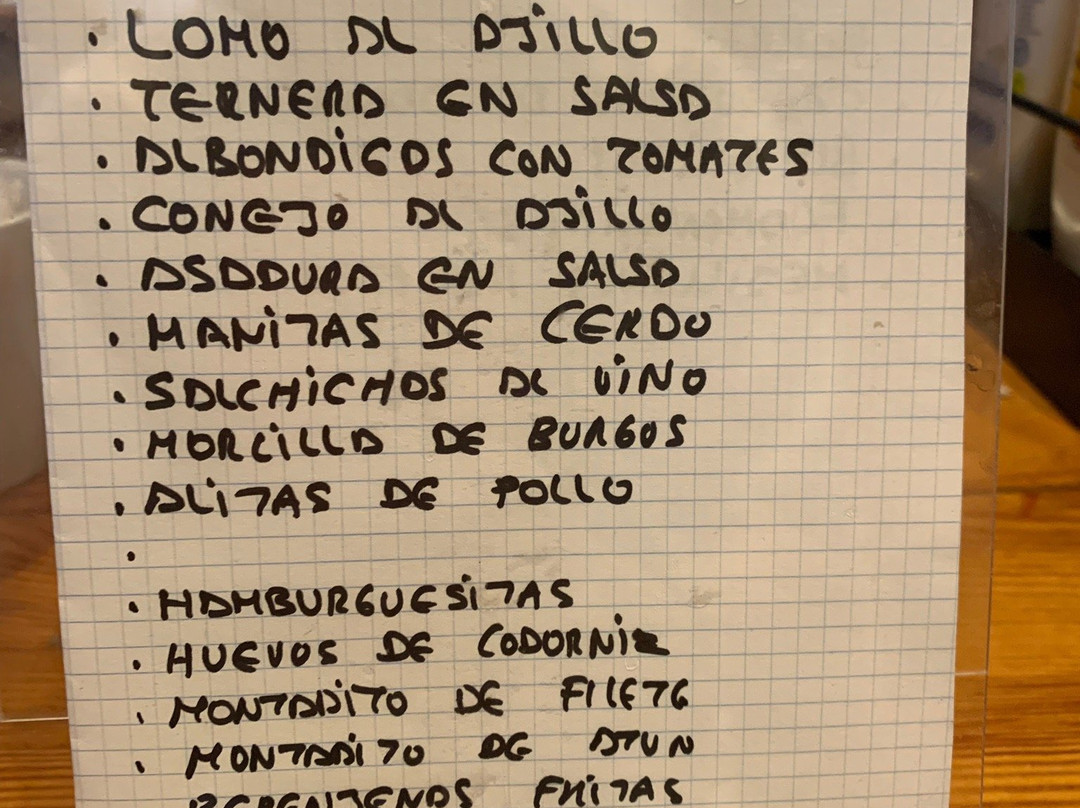 · LOMO AL AJILLO
· TERNERA EN SALSA
· ALBONDIGAS CON TOMATES
· CONEJO AL AJILLO
· ASADURA EN SALSA
· MANITAS DE CERDO
· SALCHICHAS AL VINO
· MORCILLA DE BURGOS
· ALITAS DE POLLO
·
· HAMBURGUESITAS
· HUEVOS DE CODORNIZ
· MONTADITO DE FILETE
· MONTADITO DE ATUN
BERENJENAS FRITAS